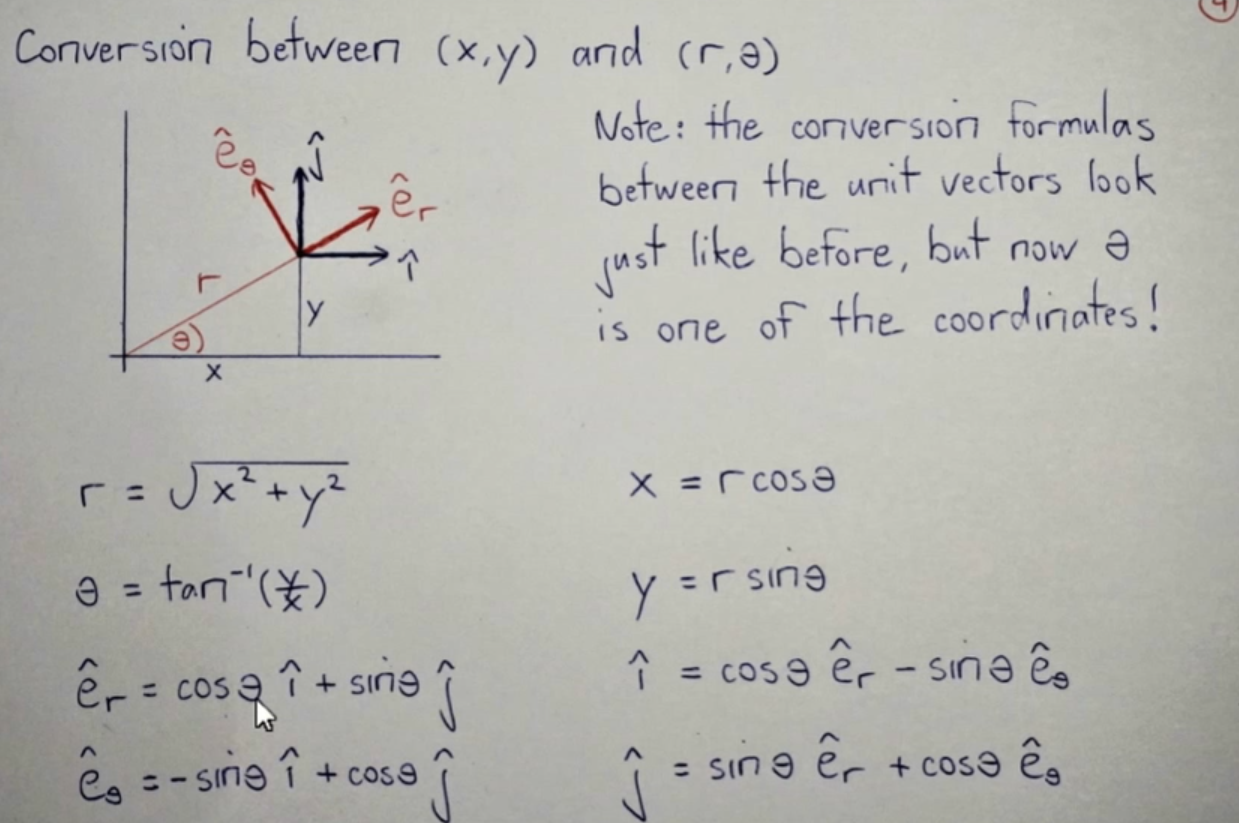 4
Conversion between (x,y) and (r,θ)
Note: the conversion formulas
between the unit vectors look
just like before, but now θ
is one of the coordinates!
ê_θ
ĵ
ê_r
î
r
y
θ
x
r = √(x² + y²)
x = r cosθ
θ = tan⁻¹(y/x)
y = r sinθ
ê_r = cosθ î + sinθ ĵ
î = cosθ ê_r − sinθ ê_θ
ê_θ = −sinθ î + cosθ ĵ
ĵ = sinθ ê_r + cosθ ê_θ